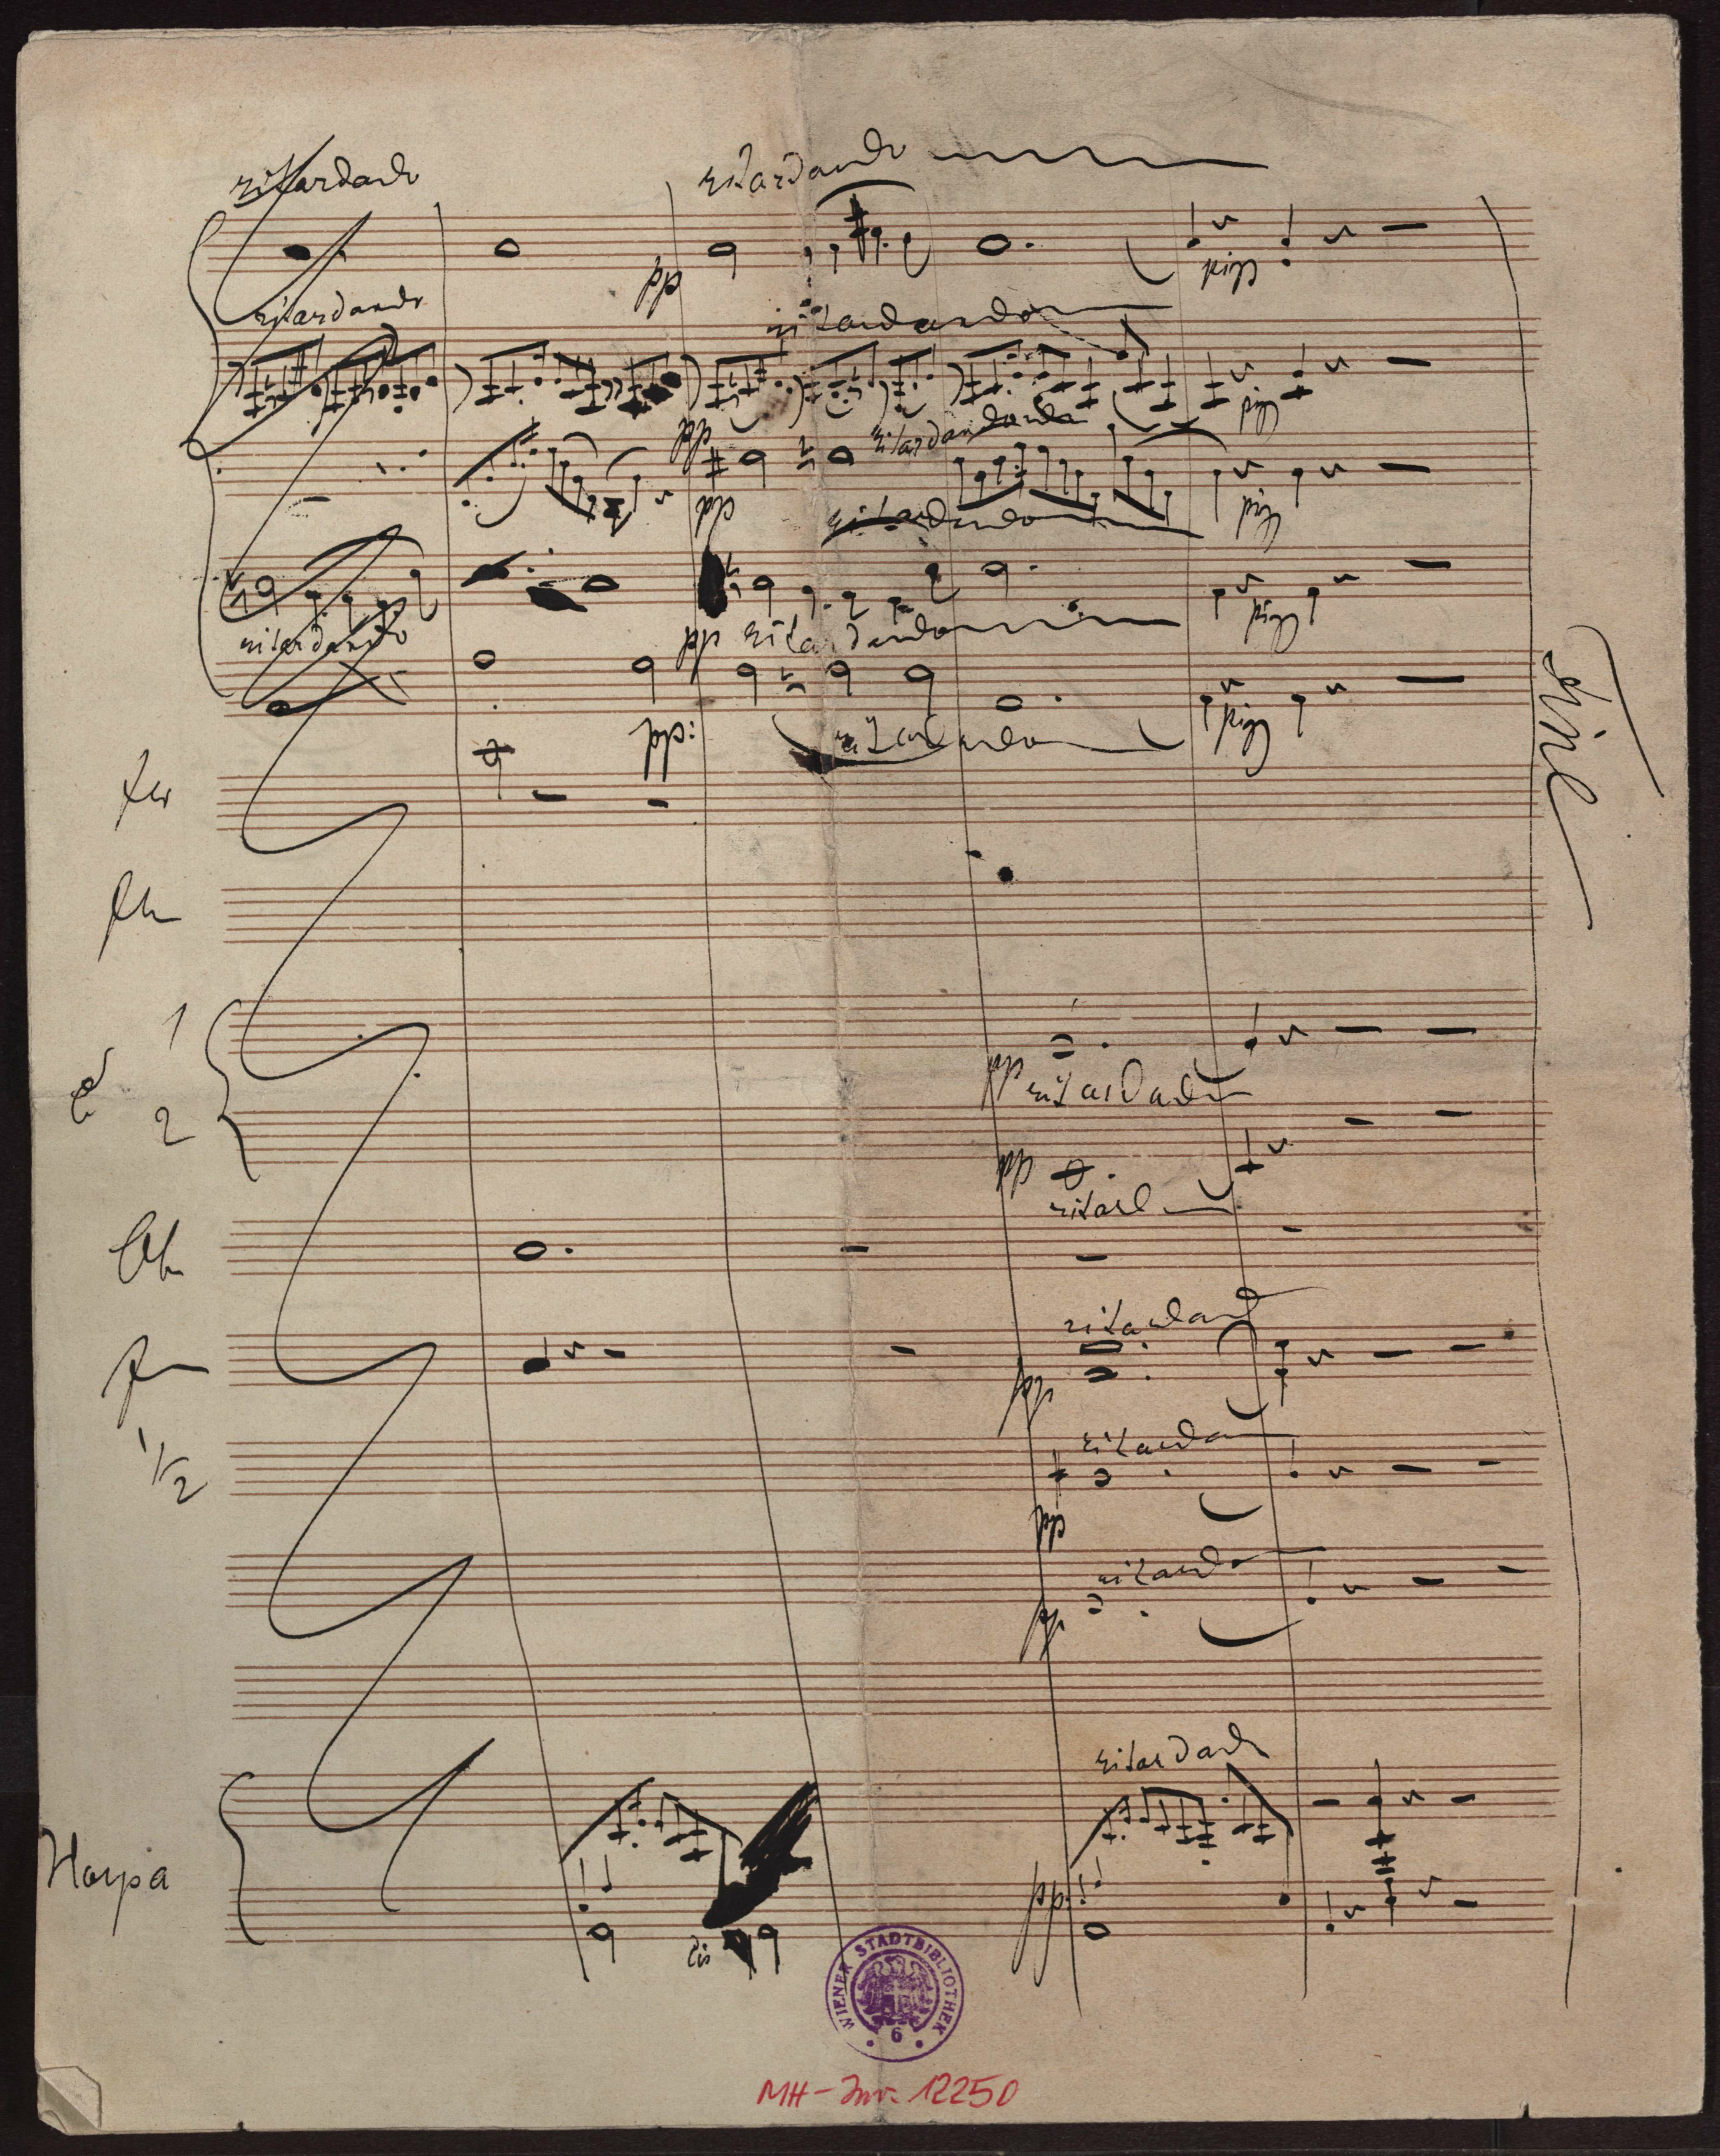 ritardando
ritardando
pp
pizz
ritardando
ritardando
pp
pizz
ritardando
pp
pizz
ritardando
pizz
ritardando
pp ritardando
pp:
pizz
ritardando
Fine
1
pp ritardando
2
pp
ritard
ritardand
pp
1/2
ritarda
pp
ritarda
pp
ritardando
Harpa
pp:
cis
WIENER STADTBIBLIOTHEK
6
MH-Inv. 12250